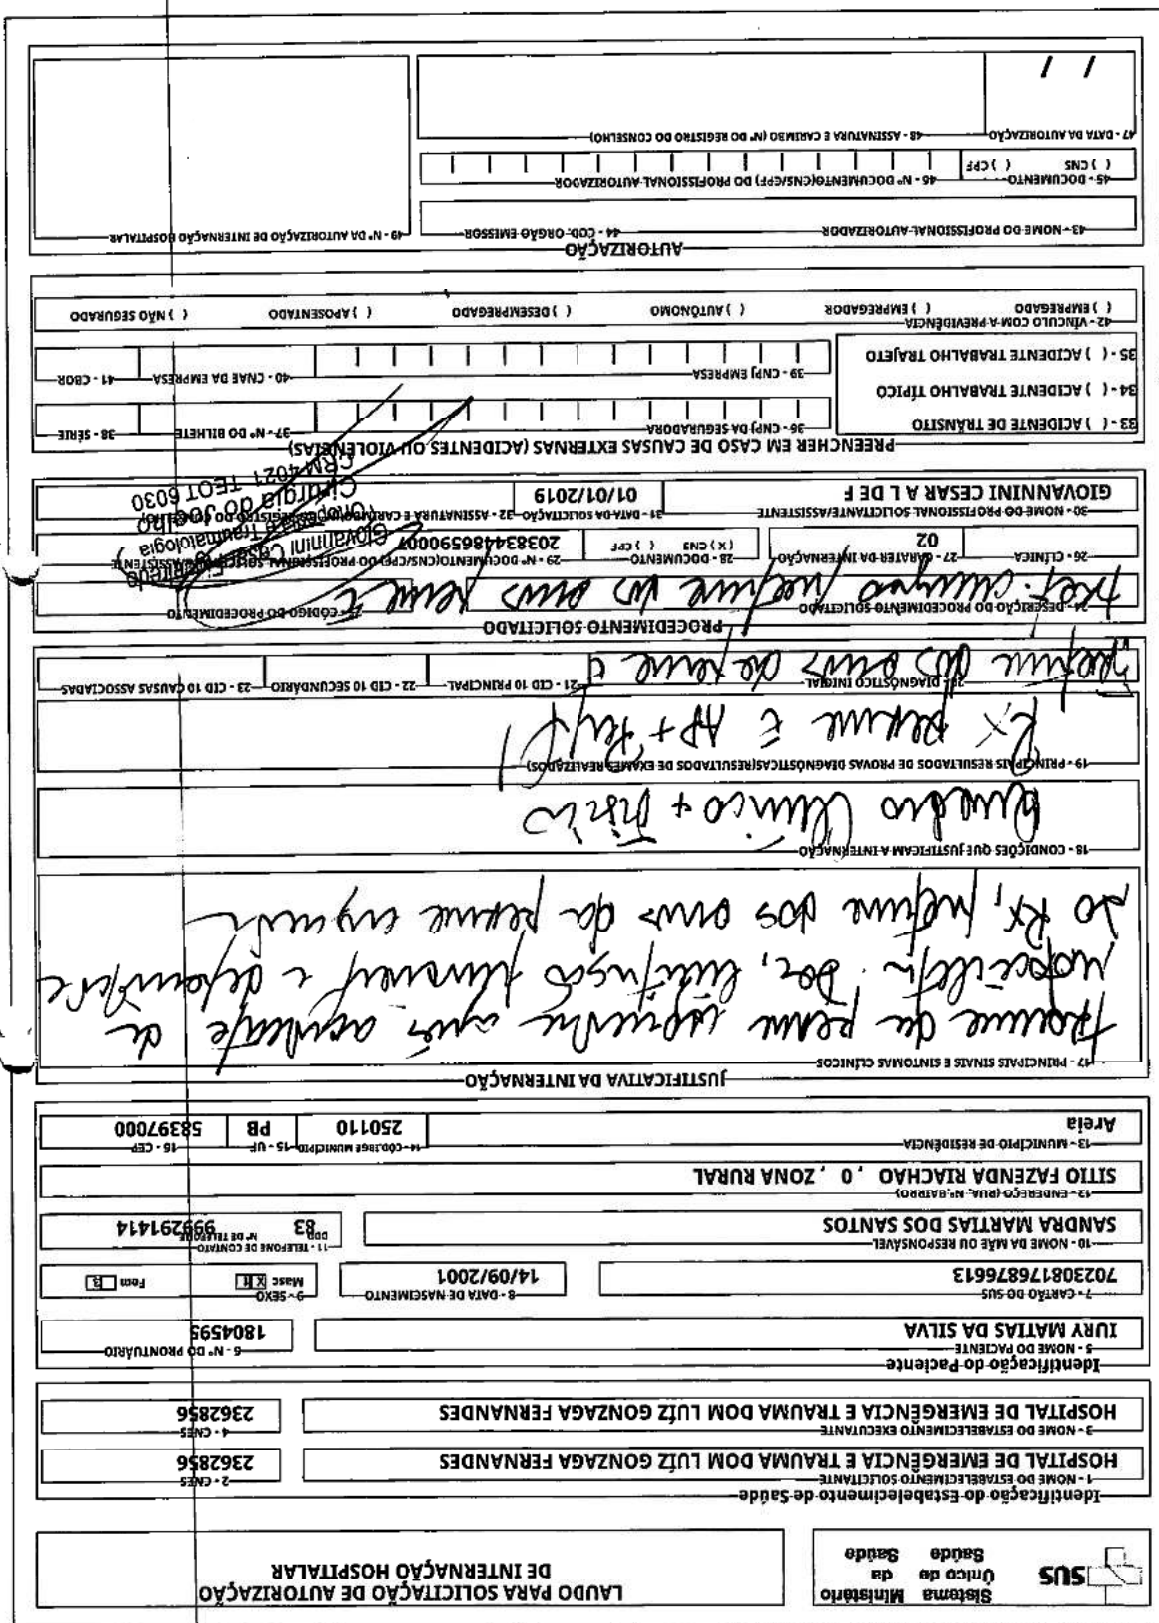 SUS
Sistema Único de Saúde
Ministério da Saúde
LAUDO PARA SOLICITAÇÃO DE AUTORIZAÇÃO
DE INTERNAÇÃO HOSPITALAR
Identificação do Estabelecimento de Saúde
1 - NOME DO ESTABELECIMENTO SOLICITANTE
2 - CNES
HOSPITAL DE EMERGÊNCIA E TRAUMA DOM LUÍZ GONZAGA FERNANDES
2362856
3 - NOME DO ESTABELECIMENTO EXECUTANTE
4 - CNES
HOSPITAL DE EMERGÊNCIA E TRAUMA DOM LUÍZ GONZAGA FERNANDES
2362856
Identificação do Paciente
5 - NOME DO PACIENTE
6 - N° DO PRONTUÁRIO
IURY MATIAS DA SILVA
1804595
7 - CARTÃO DO SUS
8 - DATA DE NASCIMENTO
9 - SEXO
702308176876613
14/09/2001
Masc X
Fem
10 - NOME DA MÃE OU RESPONSÁVEL
11 - TELEFONE DE CONTATO
DDD N° DE TELEFONE
SANDRA MARTIAS DOS SANTOS
83 999291414
12 - ENDEREÇO (RUA, N°, BAIRRO)
SITIO FAZENDA RIACHAO , 0 , ZONA RURAL
13 - MUNICÍPIO DE RESIDÊNCIA
14 - CÓD.IBGE MUNICÍPIO
15 - UF
16 - CEP
Areia
250110
PB
58397000
JUSTIFICATIVA DA INTERNAÇÃO
17 - PRINCIPAIS SINAIS E SINTOMAS CLÍNICOS
trauma da perna esquerda após acidente de
motocicleta. Dor, limitação funcional e deformidade
ao RX, fratura dos ossos da perna esquerda
18 - CONDIÇÕES QUE JUSTIFICAM A INTERNAÇÃO
Quadro Clínico + Físico
19 - PRINCIPAIS RESULTADOS DE PROVAS DIAGNÓSTICAS(RESULTADOS DE EXAMES REALIZADOS)
RX perna E AP + Perfil
20 - DIAGNÓSTICO INICIAL
21 - CID 10 PRINCIPAL
22 - CID 10 SECUNDÁRIO
23 - CID 10 CAUSAS ASSOCIADAS
Fratura dos ossos da perna E
PROCEDIMENTO SOLICITADO
24 - DESCRIÇÃO DO PROCEDIMENTO SOLICITADO
25 - CÓDIGO DO PROCEDIMENTO
trat. cirurgico fratura dos ossos perna E
26 - CLÍNICA
27 - CARÁTER DA INTERNAÇÃO
28 - DOCUMENTO
29 - N° DOCUMENTO(CNS/CPF) DO PROFISSIONAL SOLICITANTE/ASSISTENTE
02
( X ) CNS ( ) CPF
203834486590007
30 - NOME DO PROFISSIONAL SOLICITANTE/ASSISTENTE
31 - DATA DA SOLICITAÇÃO
32 - ASSINATURA E CARIMBO (N° REGISTRO DO CONSELHO)
GIOVANNINI CESAR A L DE F
01/01/2019
Giovannini Cesar Figueiredo
Ortopedia e Traumatologia
Cirurgia do Joelho
CRM 4021 TEOT 6030
PREENCHER EM CASO DE CAUSAS EXTERNAS (ACIDENTES OU VIOLÊNCIAS)
33 - ( ) ACIDENTE DE TRÂNSITO
34 - ( ) ACIDENTE TRABALHO TÍPICO
35 - ( ) ACIDENTE TRABALHO TRAJETO
36 - CNPJ DA SEGURADORA
37 - N° DO BILHETE
38 - SÉRIE
39 - CNPJ EMPRESA
40 - CNAE DA EMPRESA
41 - CBOR
42 - VÍNCULO COM A PREVIDÊNCIA
( ) EMPREGADO
( ) EMPREGADOR
( ) AUTÔNOMO
( ) DESEMPREGADO
( ) APOSENTADO
( ) NÃO SEGURADO
AUTORIZAÇÃO
43 - NOME DO PROFISSIONAL AUTORIZADOR
44 - COD. ORGÃO EMISSOR
49 - N° DA AUTORIZAÇÃO DE INTERNAÇÃO HOSPITALAR
45 - DOCUMENTO
( ) CNS ( ) CPF
46 - N° DOCUMENTO(CNS/CPF) DO PROFISSIONAL AUTORIZADOR
47 - DATA DA AUTORIZAÇÃO
48 - ASSINATURA E CARIMBO (N° DO REGISTRO DO CONSELHO)
/ /